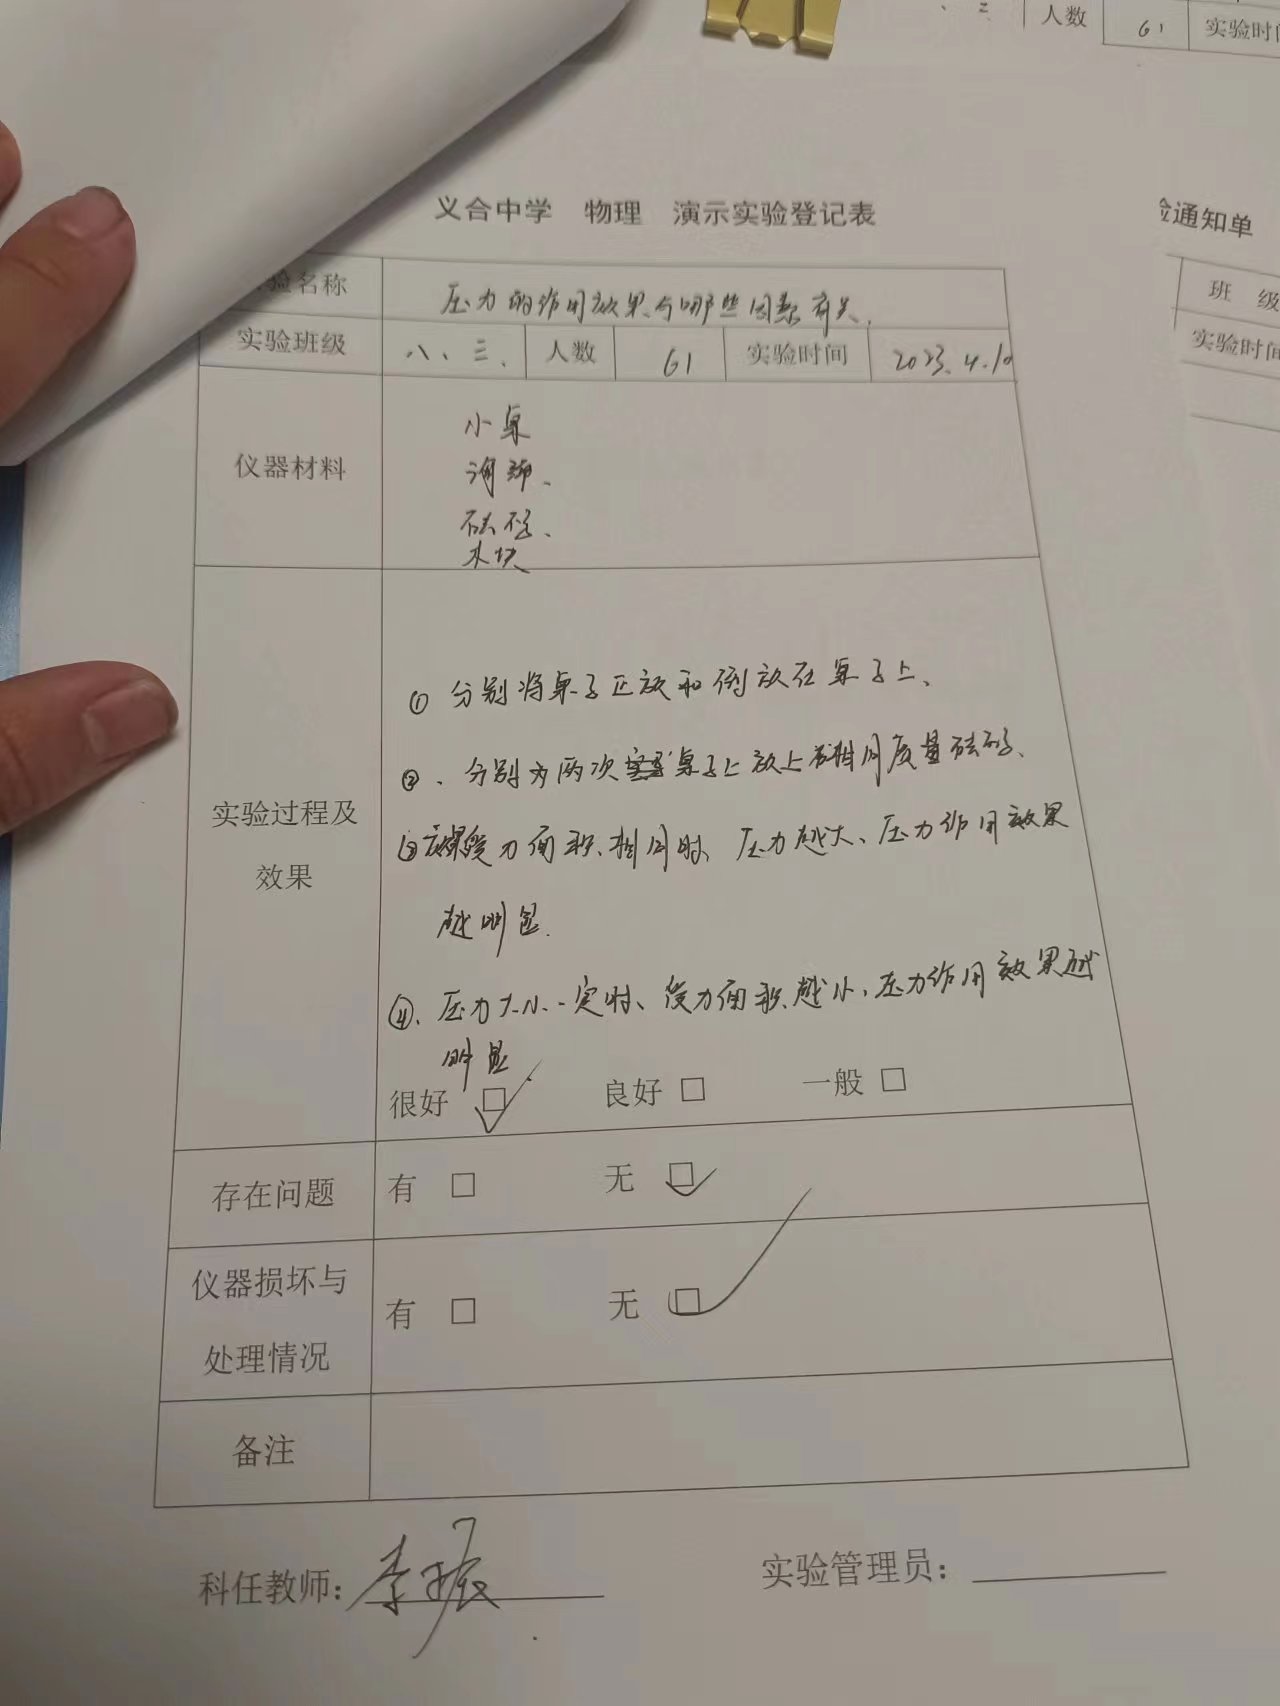 人数 61 实验时间
义合中学 物理 演示实验登记表
验通知单
实验名称 压力的作用效果与哪些因素有关.
班 级
实验班级 八、三、 人数 61 实验时间 2023.4.10
实验时间
仪器材料
小桌
海绵、
砝码、
木块
实验过程及
效果
① 分别将桌子正放和倒放在桌子上、
②、分别为两次桌子上放上相同质量砝码、
③受力面积相同时、压力越大、压力作用效果
越明显.
④、压力大小一定时、受力面积越小、压力作用效果越
明显.
很好 □ 良好 □ 一般 □
存在问题 有 □ 无 □
仪器损坏与
处理情况
有 □ 无 □
备注
科任教师: 李振 实验管理员: